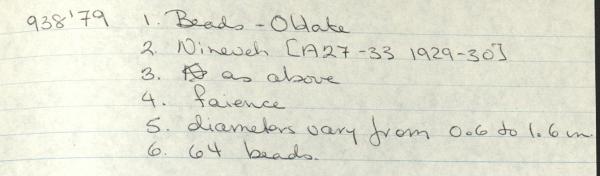 938'79 1. Beads - Oblate
2. Nineveh [A27-33 1929-30]
3. as above
4. faience
5. diameters vary from 0.6 to 1.6 cm.
6. 64 beads.